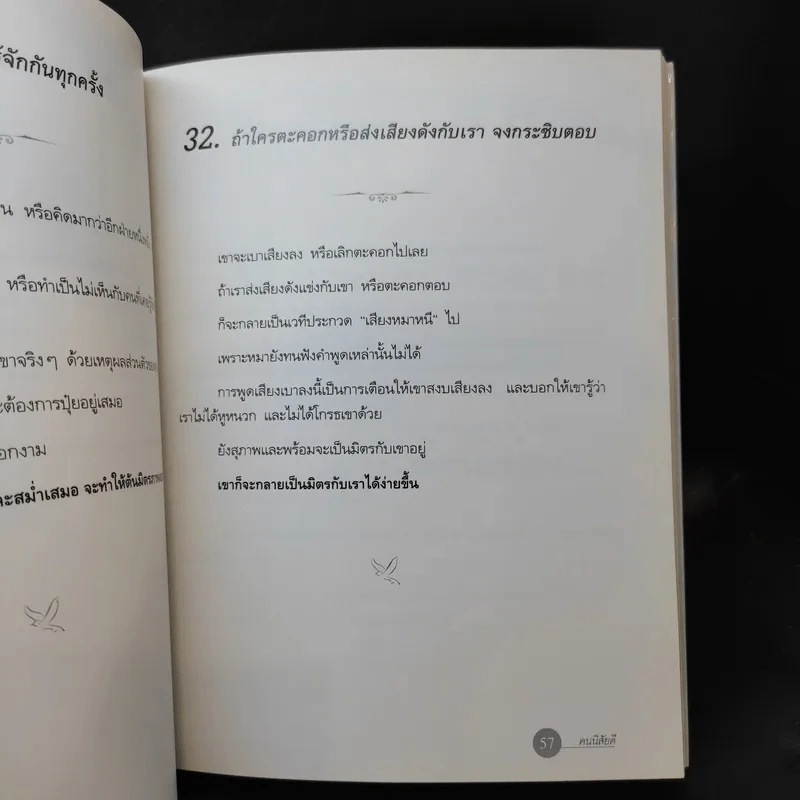 จักกันทุกครั้ง
น หรือคิดมากว่าอีกฝ่ายหนึ่ง
หรือทำเป็นไม่เห็นกับคนที่เคย
ขาจริงๆ ด้วยเหตุผลส่วนตัว
ะต้องการปุ๋ยอยู่เสมอ
อกงาม
ละสม่ำเสมอ จะทำให้ต้นมิตรภาพ
32. ถ้าใครตะคอกหรือส่งเสียงดังกับเรา จงกระซิบตอบ
เขาจะเบาเสียงลง หรือเลิกตะคอกไปเลย
ถ้าเราส่งเสียงดังแข่งกับเขา หรือตะคอกตอบ
ก็จะกลายเป็นเวทีประกวด "เสียงหมาหนี" ไป
เพราะหมายังทนฟังคำพูดเหล่านั้นไม่ได้
การพูดเสียงเบาลงนี้เป็นการเตือนให้เขาสงบเสียงลง และบอกให้เขารู้ว่า
เราไม่ได้หูหนวก และไม่ได้โกรธเขาด้วย
ยังสุภาพและพร้อมจะเป็นมิตรกับเขาอยู่
เขาก็จะกลายเป็นมิตรกับเราได้ง่ายขึ้น
57 คนนิสัยดี